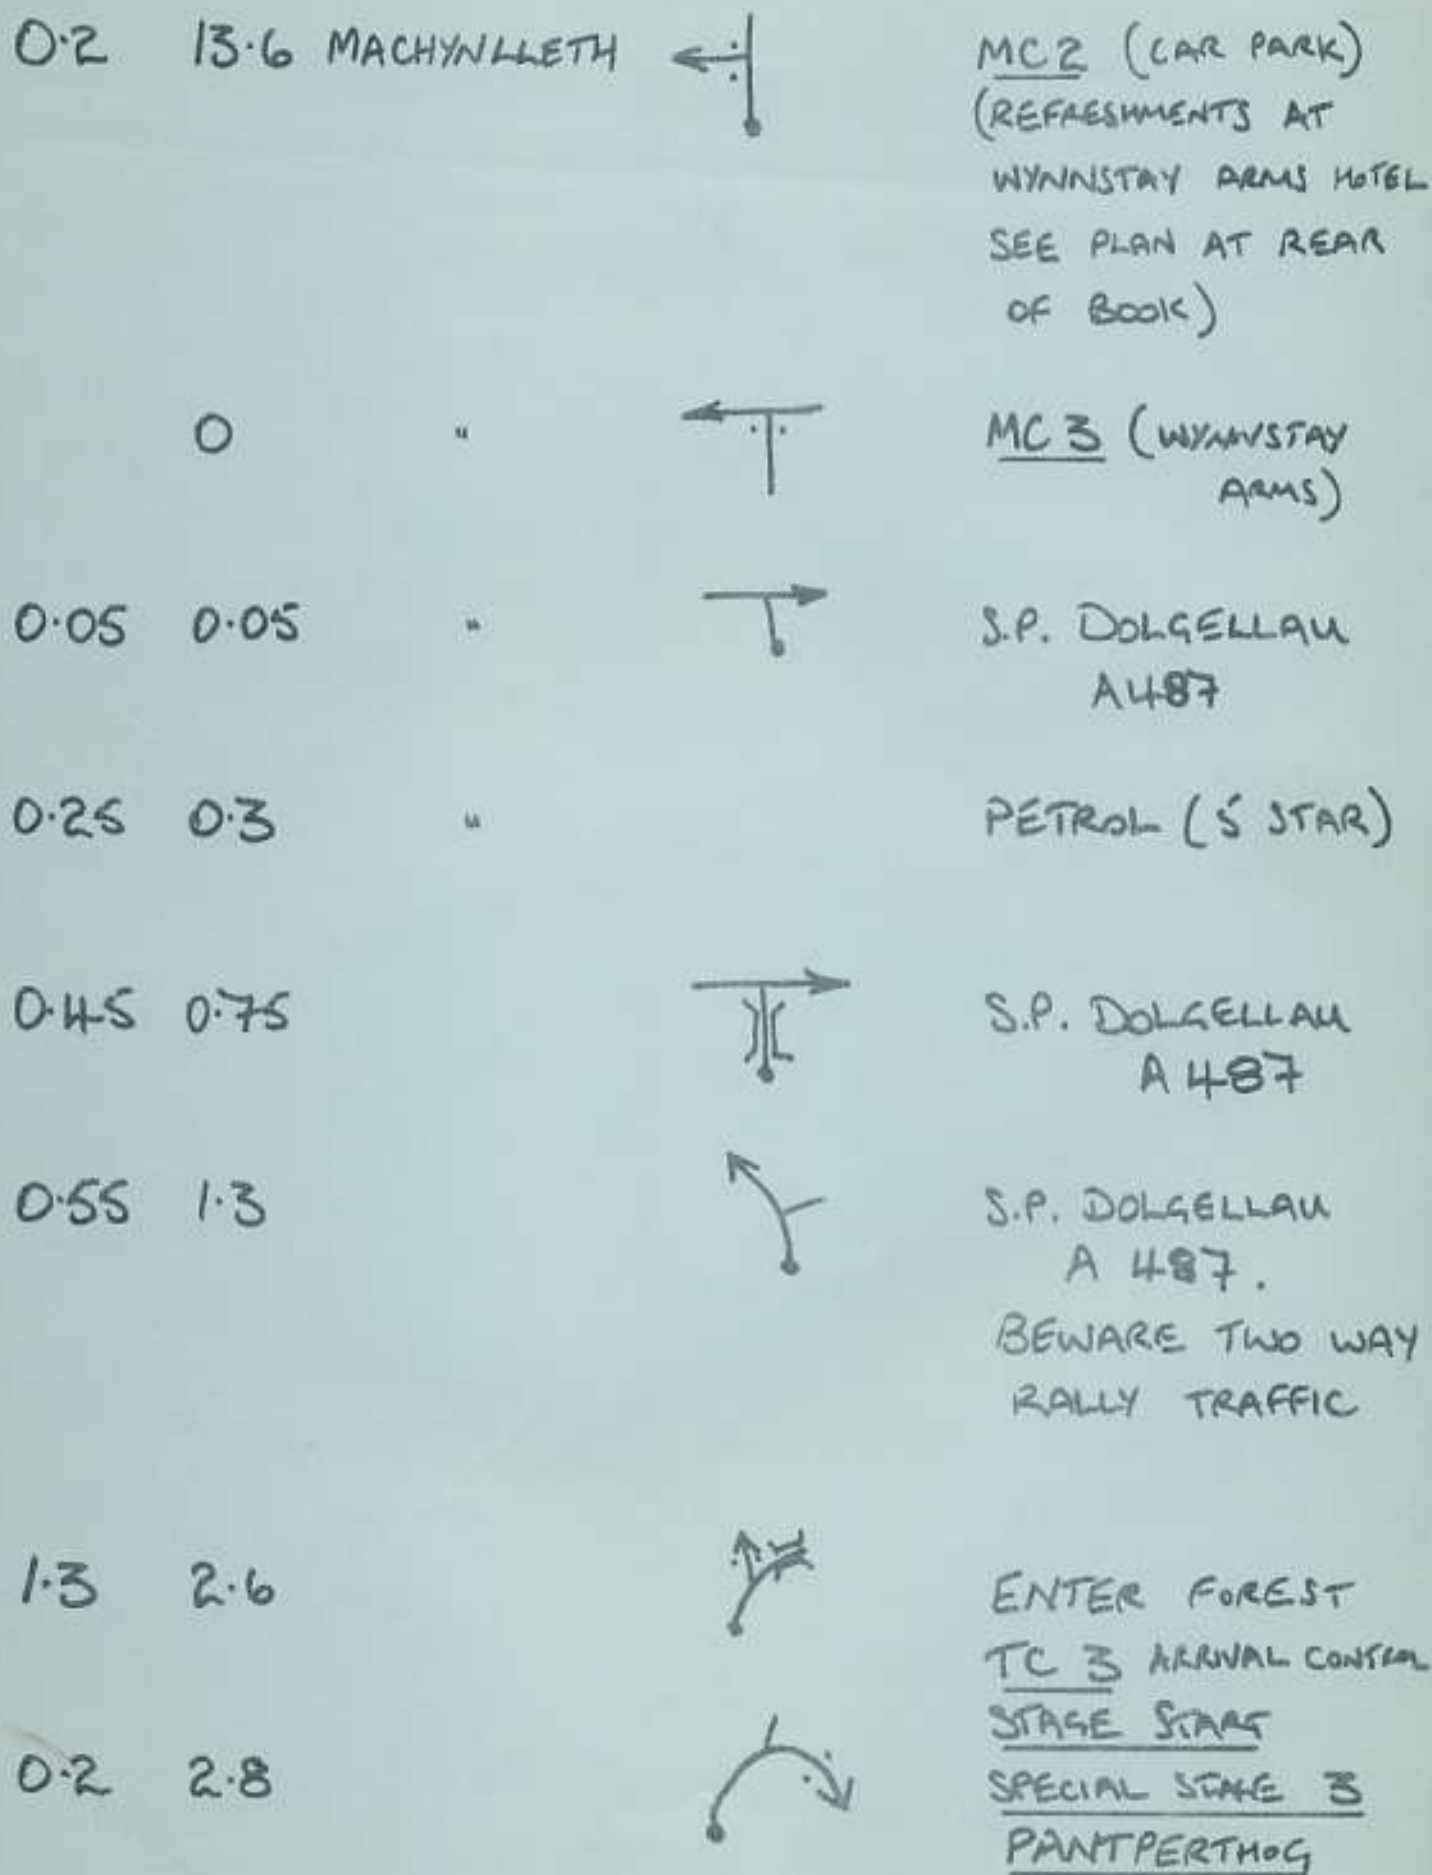 0.2 13.6 MACHYNLLETH MC2 (CAR PARK)
(REFRESHMENTS AT
WYNNSTAY ARMS HOTEL
SEE PLAN AT REAR
OF BOOK)
0 " MC3 (WYNNSTAY
ARMS)
0.05 0.05 " S.P. DOLGELLAU
A487
0.25 0.3 " PETROL (5 STAR)
0.45 0.75 S.P. DOLGELLAU
A487
0.55 1.3 S.P. DOLGELLAU
A 487.
BEWARE TWO WAY
RALLY TRAFFIC
1.3 2.6 ENTER FOREST
TC 3 ARRIVAL CONTROL
STAGE START
0.2 2.8 SPECIAL STAGE 3
PANTPERTHOG